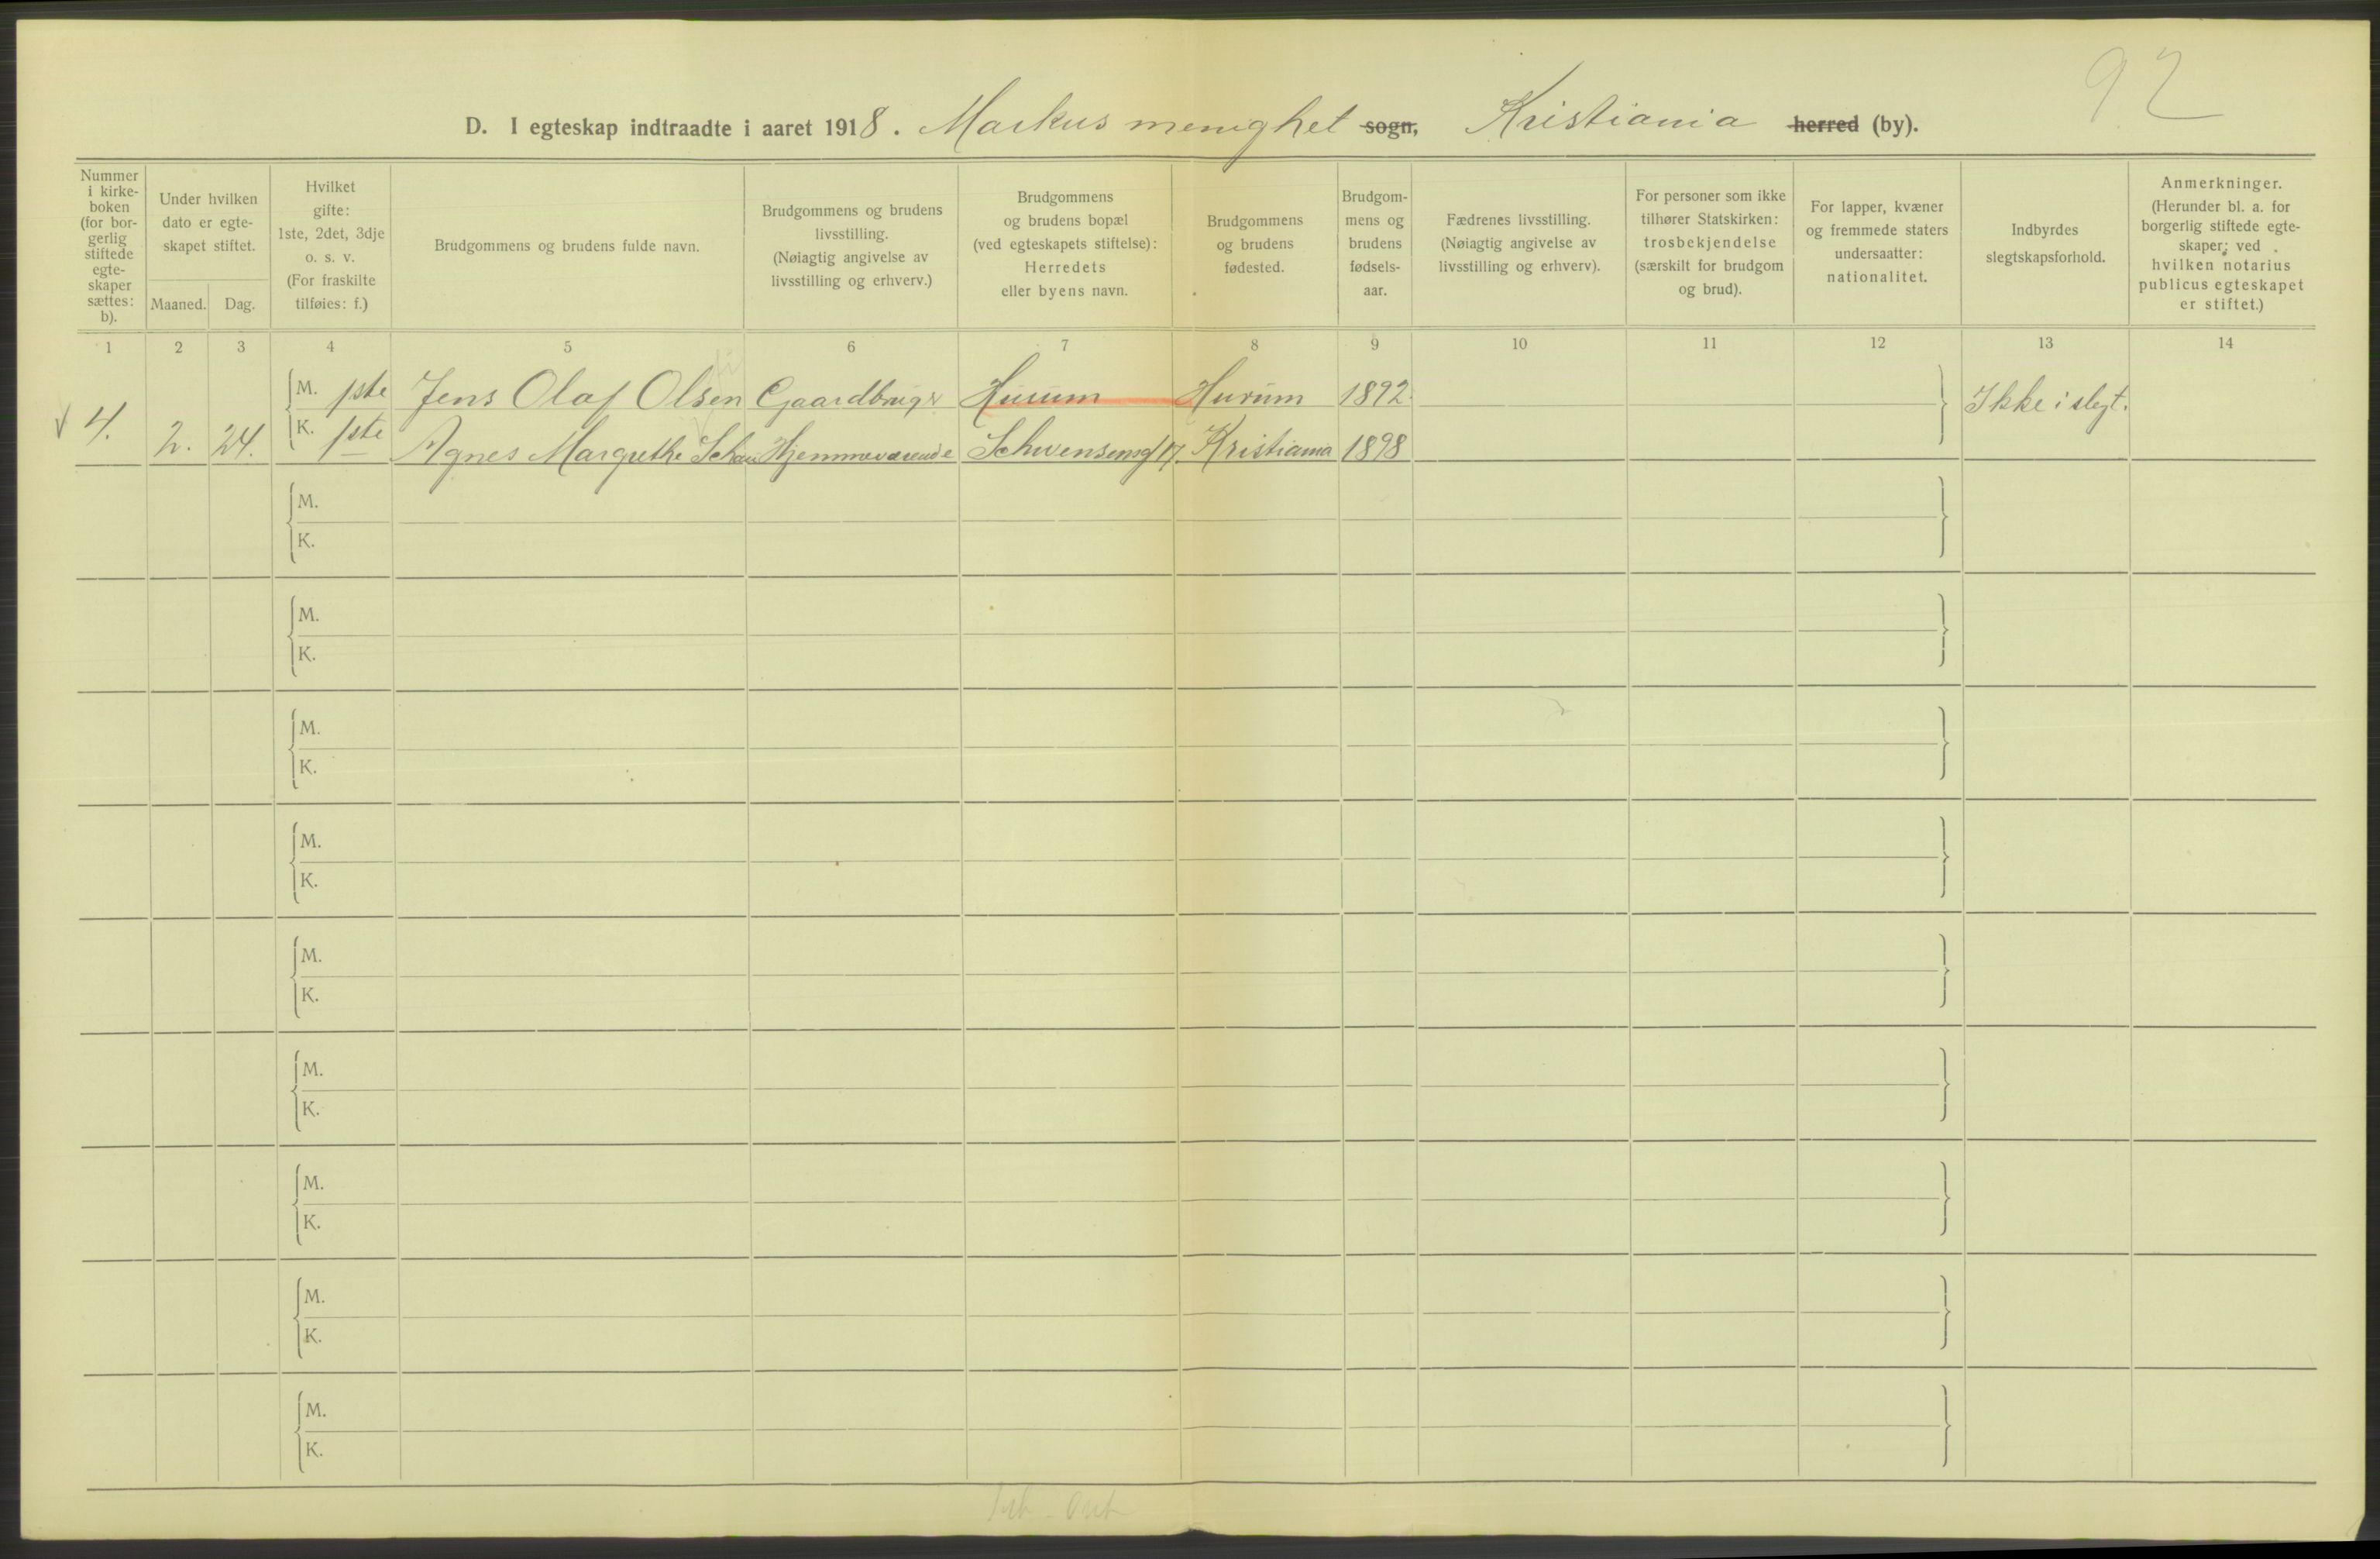 92
D. I egteskap indtraadte i aaret 1918. Markus menighet sogn, Kristiania herred (by).
Nummer
i kirke-
boken
(for bor-
gerlig
stiftede
egte-
skaper
sættes:
b).
Under hvilken
dato er egte-
skapet stiftet.
Maaned.
Dag.
Hvilket
gifte:
1ste, 2det, 3dje
o. s. v.
(For fraskilte
tilføies: f.)
Brudgommens og brudens fulde navn.
Brudgommens og brudens
livsstilling.
(Nøiagtig angivelse av
livsstilling og erhverv.)
Brudgommens
og brudens bopæl
(ved egteskapets stiftelse):
Herredets
eller byens navn.
Brudgommens
og brudens
fødested.
Brudgom-
mens og
brudens
fødsels-
aar.
Fædrenes livsstilling.
(Nøiagtig angivelse av
livsstilling og erhverv).
For personer som ikke
tilhører Statskirken:
trosbekjendelse
(særskilt for brudgom
og brud).
For lapper, kvæner
og fremmede staters
undersaatter:
nationalitet.
Indbyrdes
slegtskapsforhold.
Anmerkninger.
(Herunder bl. a. for
borgerlig stiftede egte-
skaper; ved
hvilken notarius
publicus egteskapet
er stiftet.)
1 2 3 4 5 6 7 8 9 10 11 12 13 14
M. 1ste Jens Olaf Olsen Gaardbruger Hurum Hurum 1892. Ikke i slegt.
4. 2. 24. K. 1ste Agnes Margrethe Schwensensg 17 Hjemmeværende Kristiania 1898
M.
K.
M.
K.
M.
K.
M.
K.
M.
K.
M.
K.
M.
K.
M.
K.
M.
K.